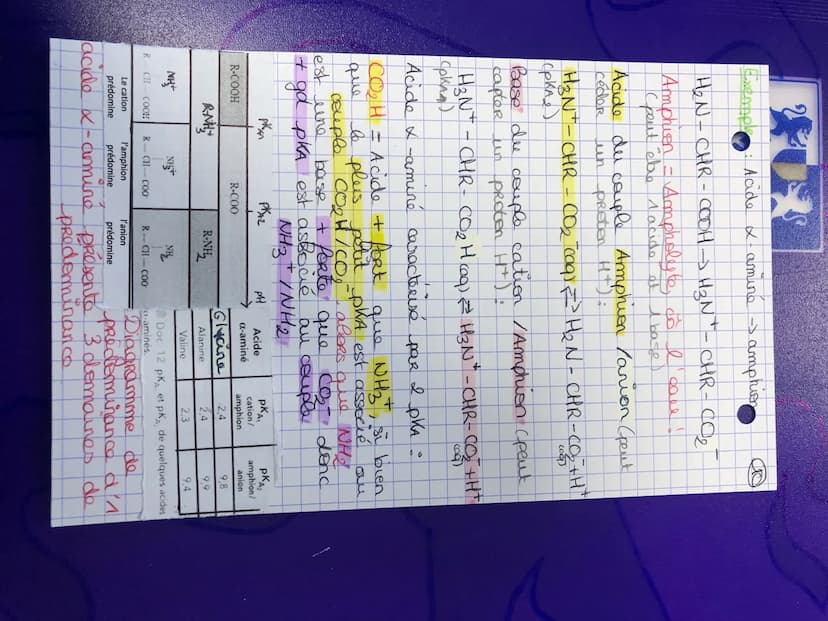 Exemple : Acide α-aminé → amphion
H₂N - CHR - COOH → H₃N⁺ - CHR - CO₂⁻
Amphion = Ampholyte, cô l'eau !
(peut être 1 acide et 1 base)
Acide du couple Amphion / anion (peut
céder un proton H⁺) :
H₃N⁺ - CHR - CO₂⁻(aq) ⇄ H₂N - CHR - CO₂⁻ + H⁺
(aq)
(pKA2)
Base du couple cation / Amphion (peut
capter un proton H⁺) :
H₃N⁺ - CHR - CO₂H(aq) ⇄ H₃N⁺ - CHR - CO₂⁻ + H⁺
(aq)
(pKA1)
Acide α-aminé caractérisé par 2 pKA :
CO₂H = Acide + fort que NH₃⁺, si bien
que le plus petit pKA est associé au
couple CO₂H/CO₂⁻ alors que NH₂
est une base + forte que CO₂⁻ donc
+ gd pKA est associé au couple
NH₃⁺/NH₂
pKA1 pKA2 pH
R-COOH R-COO
R-NH₃⁺ R-NH₂
NH₃⁺ NH₃⁺ NH₂
R - CH - COOH R - CH - COO R - CH - COO
Le cation l'amphion l'anion
prédomine prédomine prédomine
Acide pKA1 pKA2
α-aminé cation/ amphion/
amphion anion
Glycine 2,4 9,8
Alanine 2,4 9,9
Valine 2,3 9,4
Doc 12 pKA1 et pKA2 de quelques acides
α-aminés
Diagramme de
prédominance d'1
acide α-aminé présente 3 domaines de
prédominance